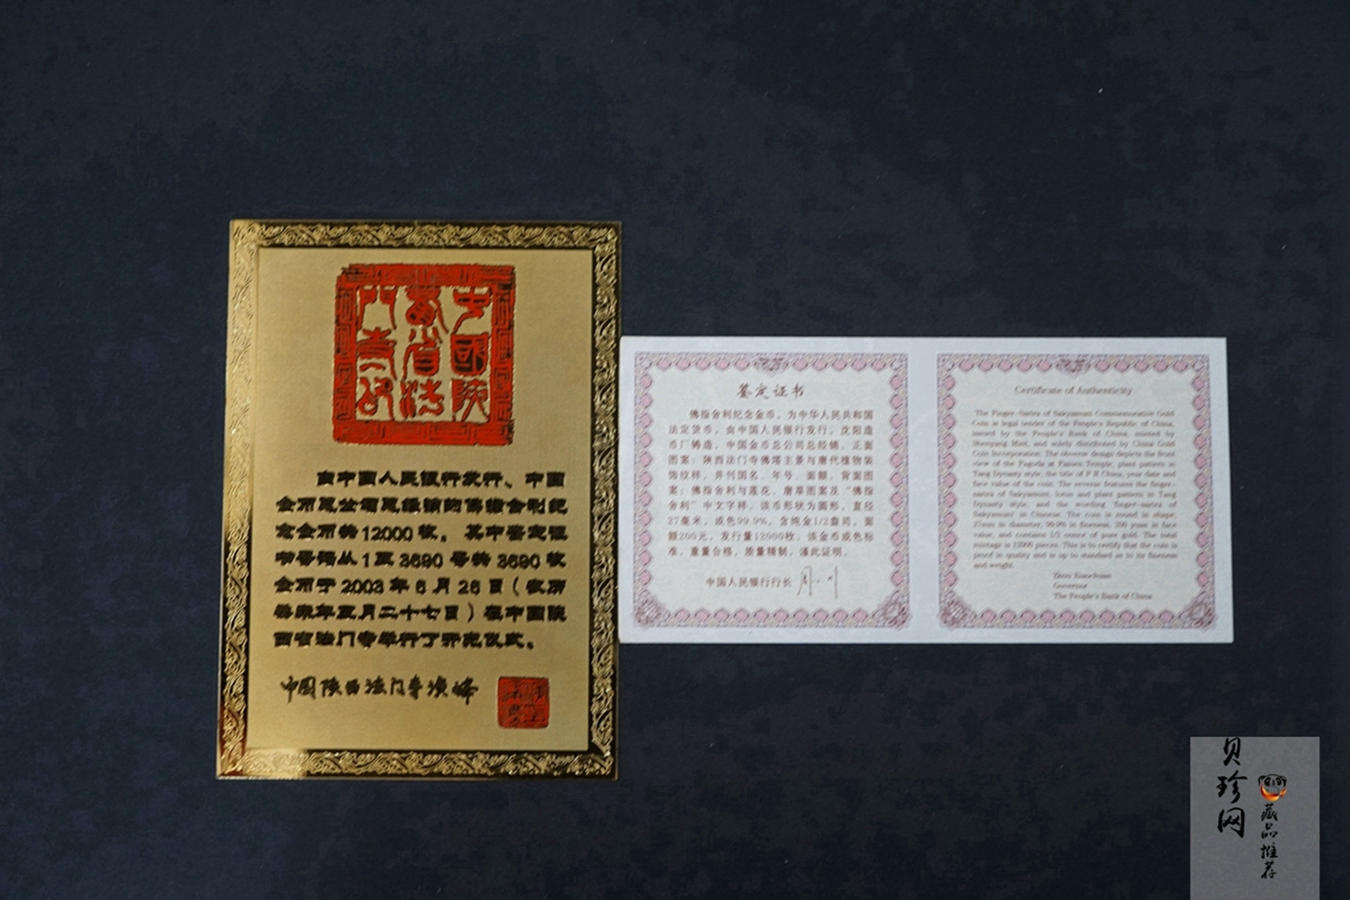 中国陕
西省法
门寺印
由中国人民银行发行、中国
金币总公司总经销的佛指舍利纪
念金币共12000枚。其中鉴定证
书号码从1至3690号共3690枚
金币于2003年6月26日（农历
癸未年五月二十七日）在中国陕
西省法门寺举行了开光仪式。
中国陕西法门寺
鉴定证书
佛指舍利纪念金币，为中华人民共和国
法定货币，由中国人民银行发行，沈阳造
币厂铸造，中国金币总公司总经销。正面
图案：陕西法门寺佛塔主景与唐代植物装
饰纹样，并刊国名、年号、面额。背面图
案：佛指舍利与莲花、唐草图案及“佛指
舍利”中文字样。该币形状为圆形，直径
27毫米，成色99.9%，含纯金1/2盎司，面
额200元，发行量12000枚。该金币成色标
准，重量合格，质量精制，谨此证明。
中国人民银行行长
Certificate of Authenticity
The Finger-Sarira of Sakyamuni Commemorative Gold
Coin is legal tender of the People's Republic of China,
issued by the People's Bank of China, minted by
Shenyang Mint, and solely distributed by China Gold
Coin Incorporation. The obverse design depicts the front
view of the Pagoda at Famen Temple, plant pattern in
Tang Dynasty style, the title of P R China, year date and
face value of the coin. The reverse features the finger-
sarira of Sakyamuni, lotus and plant pattern in Tang
Dynasty style, and the wording 'finger-sarira of
Sakyamuni' in Chinese. The coin is round in shape,
27mm in diameter, 99.9% in fineness, 200 yuan in face
value, and contains 1/2 ounce of pure gold. The total
mintage is 12000 pieces. This is to certify that the coin is
proof in quality and is up to standard as to its fineness
and weight.
Zhou Xiaochuan
Governor
The People's Bank of China
贝珍网
藏品推荐